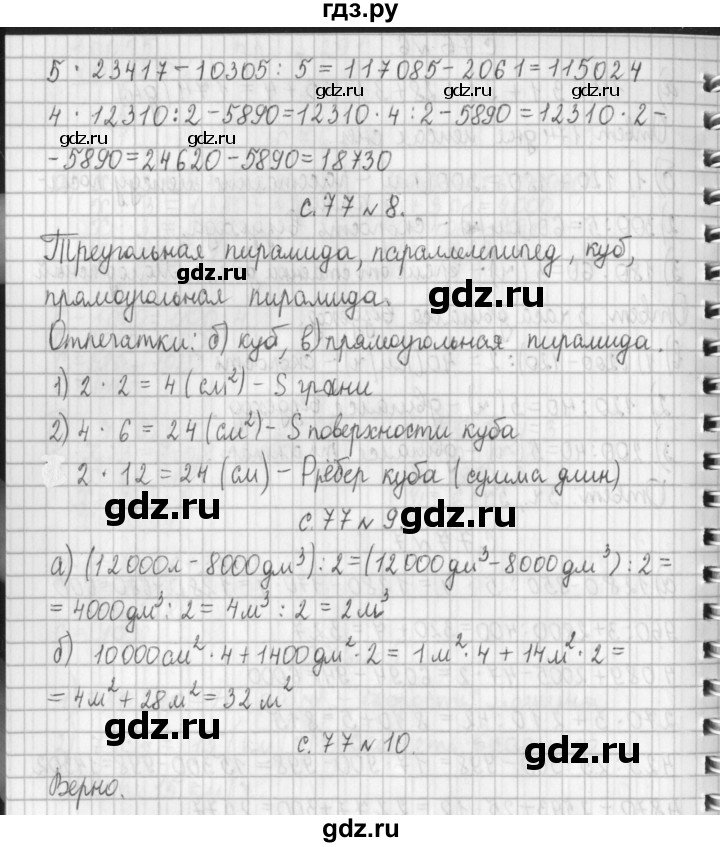 гдз.ру
5 · 23417 - 10305 : 5 = 117085 - 2061 = 115024
gdz.ru gdz.ru
4 · 12310 : 2 - 5890 = 12310 · 4 : 2 - 5890 = 12310 · 2 -
gdz.ru gdz.ru gdz.ru
- 5890 = 24620 - 5890 = 18730
с. 77 № 8.
Треугольная пирамида, параллелепипед, куб,
gdz.ru gdz.ru
прямоугольная пирамида.
Отпечатки: б) куб, в) прямоугольная пирамида.
1) 2 · 2 = 4 (см²) - S грани
gdz.ru
2) 4 · 6 = 24 (см²) - S поверхности куба
2 · 12 = 24 (см) - Pрёбер куба (сумма длин)
gdz.ru gdz.ru
с. 77 № 9.
а) (12000л - 8000дм³) : 2 = (12000дм³ - 8000дм³) : 2 =
= 4000дм³ : 2 = 4м³ : 2 = 2м³
gdz.ru
б) 10000см² · 4 + 1400дм² · 2 = 1м² · 4 + 14м² · 2 =
= 4м² + 28м² = 32м²
gdz.ru
с. 77 № 10.
gdz.ru
Верно.
gdz.ru